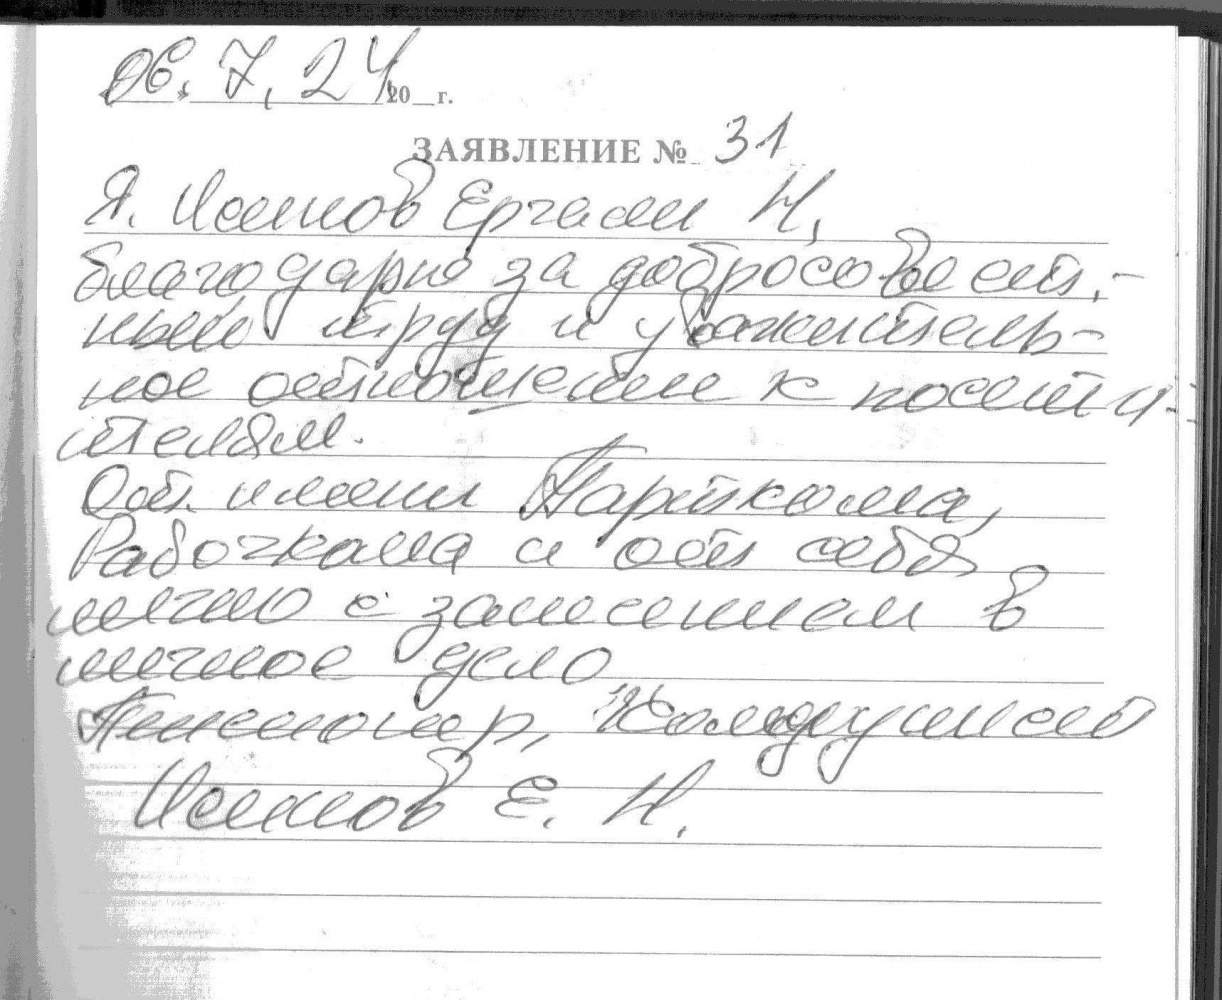 06.7.24 20__г.
ЗАЯВЛЕНИЕ № 31
Я. Исинов Ергали Н,
благодарю за добросовест-
ный труд и уважитель-
ное отношение к посети-
телям.
От имени Парткома,
Рабочкома и от себя
лично с занесением в
личное дело
Пенсионер,
Исинов Е. Н.